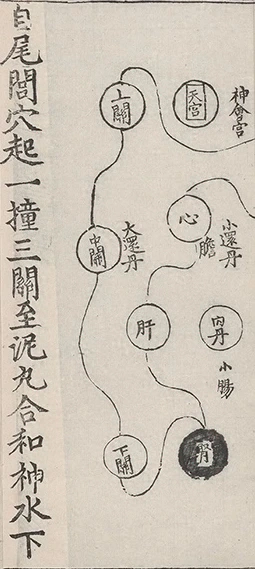 天宮
上關
心
小還丹
膽
大還丹
中關
內丹
肝
小腸
腎
下關
自尾閭穴起一撞三關至泥丸合和神水下